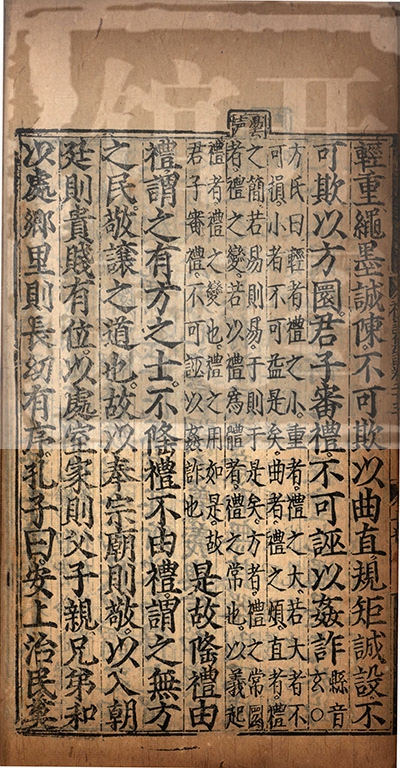 輕重繩墨誠陳不可欺以曲直規矩誠設不
可欺以方圜君子審禮不可誣以姦詐縣音玄○
方氏曰輕者禮之小重者禮之大若大者不
可損小者不可益是矣曲者禮之煩直者禮
之簡若易則易于則于是矣方者禮之常圜
者禮之變若以禮爲體者禮之常也以義起
禮者禮之變也禮之用如是故
君子審禮不可誣以姦詐也
是故隆禮由
禮謂之有方之士不隆禮不由禮謂之無方
之民敬讓之道也故以奉宗廟則敬以入朝
廷則貴賤有位以處室家則父子親兄弟和
以處鄉里則長幼有序孔子曰安上治民莫